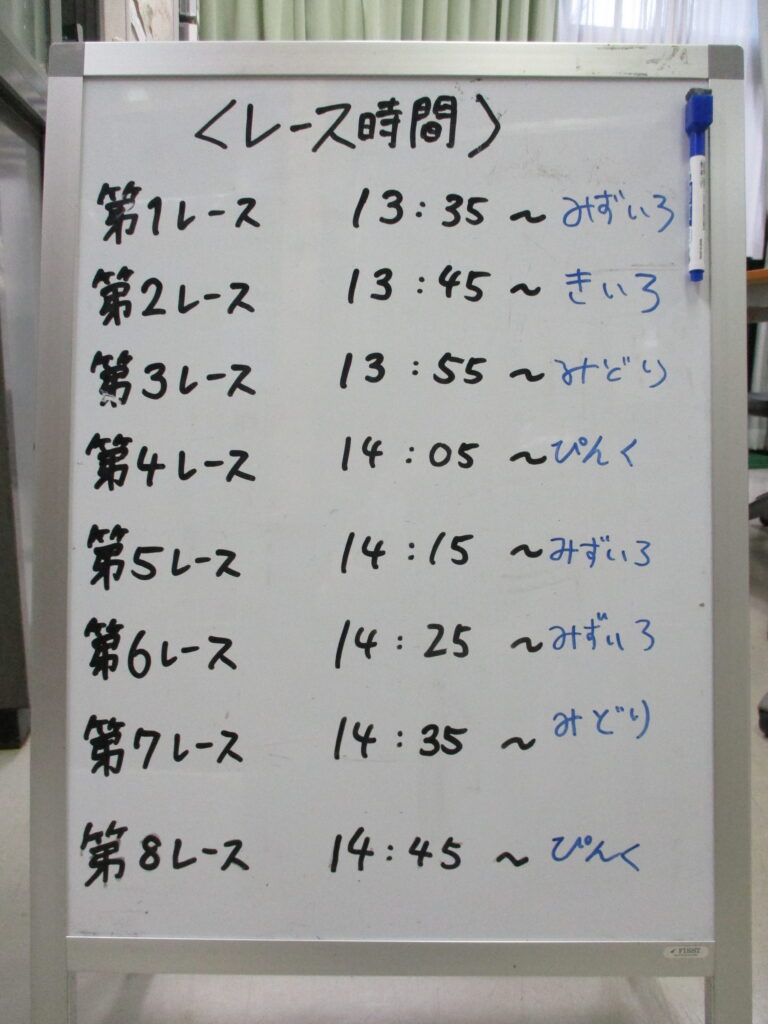 <レース時間>
第1レース 13:35 ~ みずいろ
第2レース 13:45 ~ きいろ
第3レース 13:55 ~ みどり
第4レース 14:05 ~ ぴんく
第5レース 14:15 ~ みずいろ
第6レース 14:25 ~ みずいろ
第7レース 14:35 ~ みどり
第8レース 14:45 ~ ぴんく